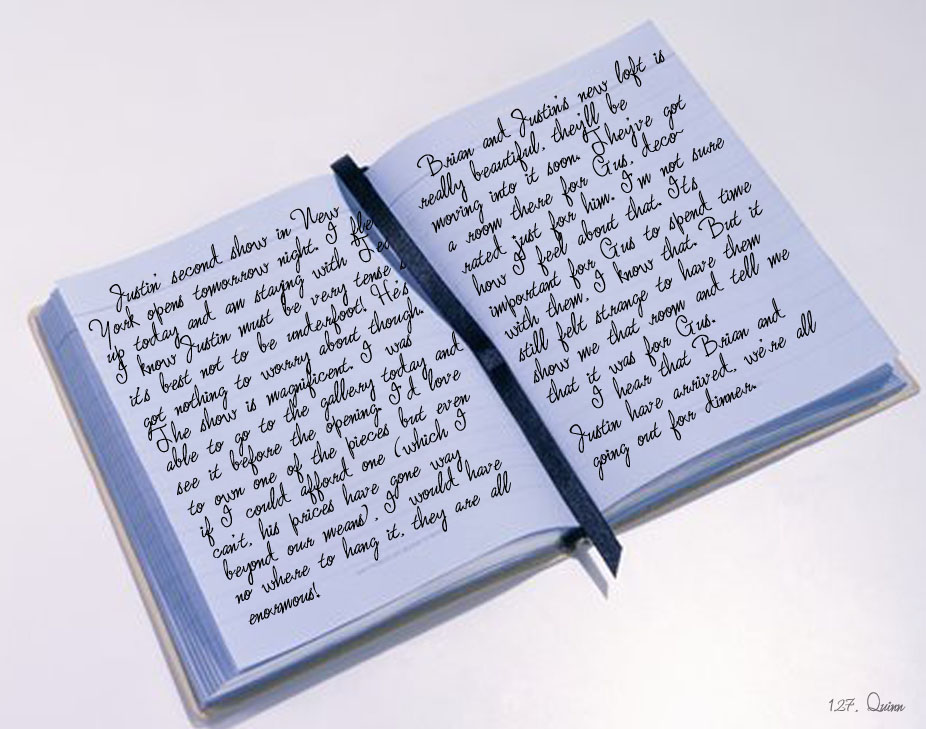 Justin' second show in New
York opens tomorrow night. I
up today and am staying with
I know Justin must be very tense
it's best not to be underfoot! He's
got nothing to worry about though.
The show is magnificent. I was
able to go to the gallery today and
see it before the opening. I'd love
to own one of the pieces but even
if I could afford one (which I
can't, his prices have gone way
beyond our means), I would have
no where to hang it, they are all
enormous!
Brian and Justin's new loft is
really beautiful, they'll be
moving into it soon. They've got
a room there for Gus, deco
rated just for him. I'm not sure
how I feel about that. It's
important for Gus to spend time
with them, I know that. But it
still felt strange to have them
show me that room and tell me
that it was for Gus.
I hear that Brian and
Justin have arrived, we're all
going out for dinner.
127. Quinn